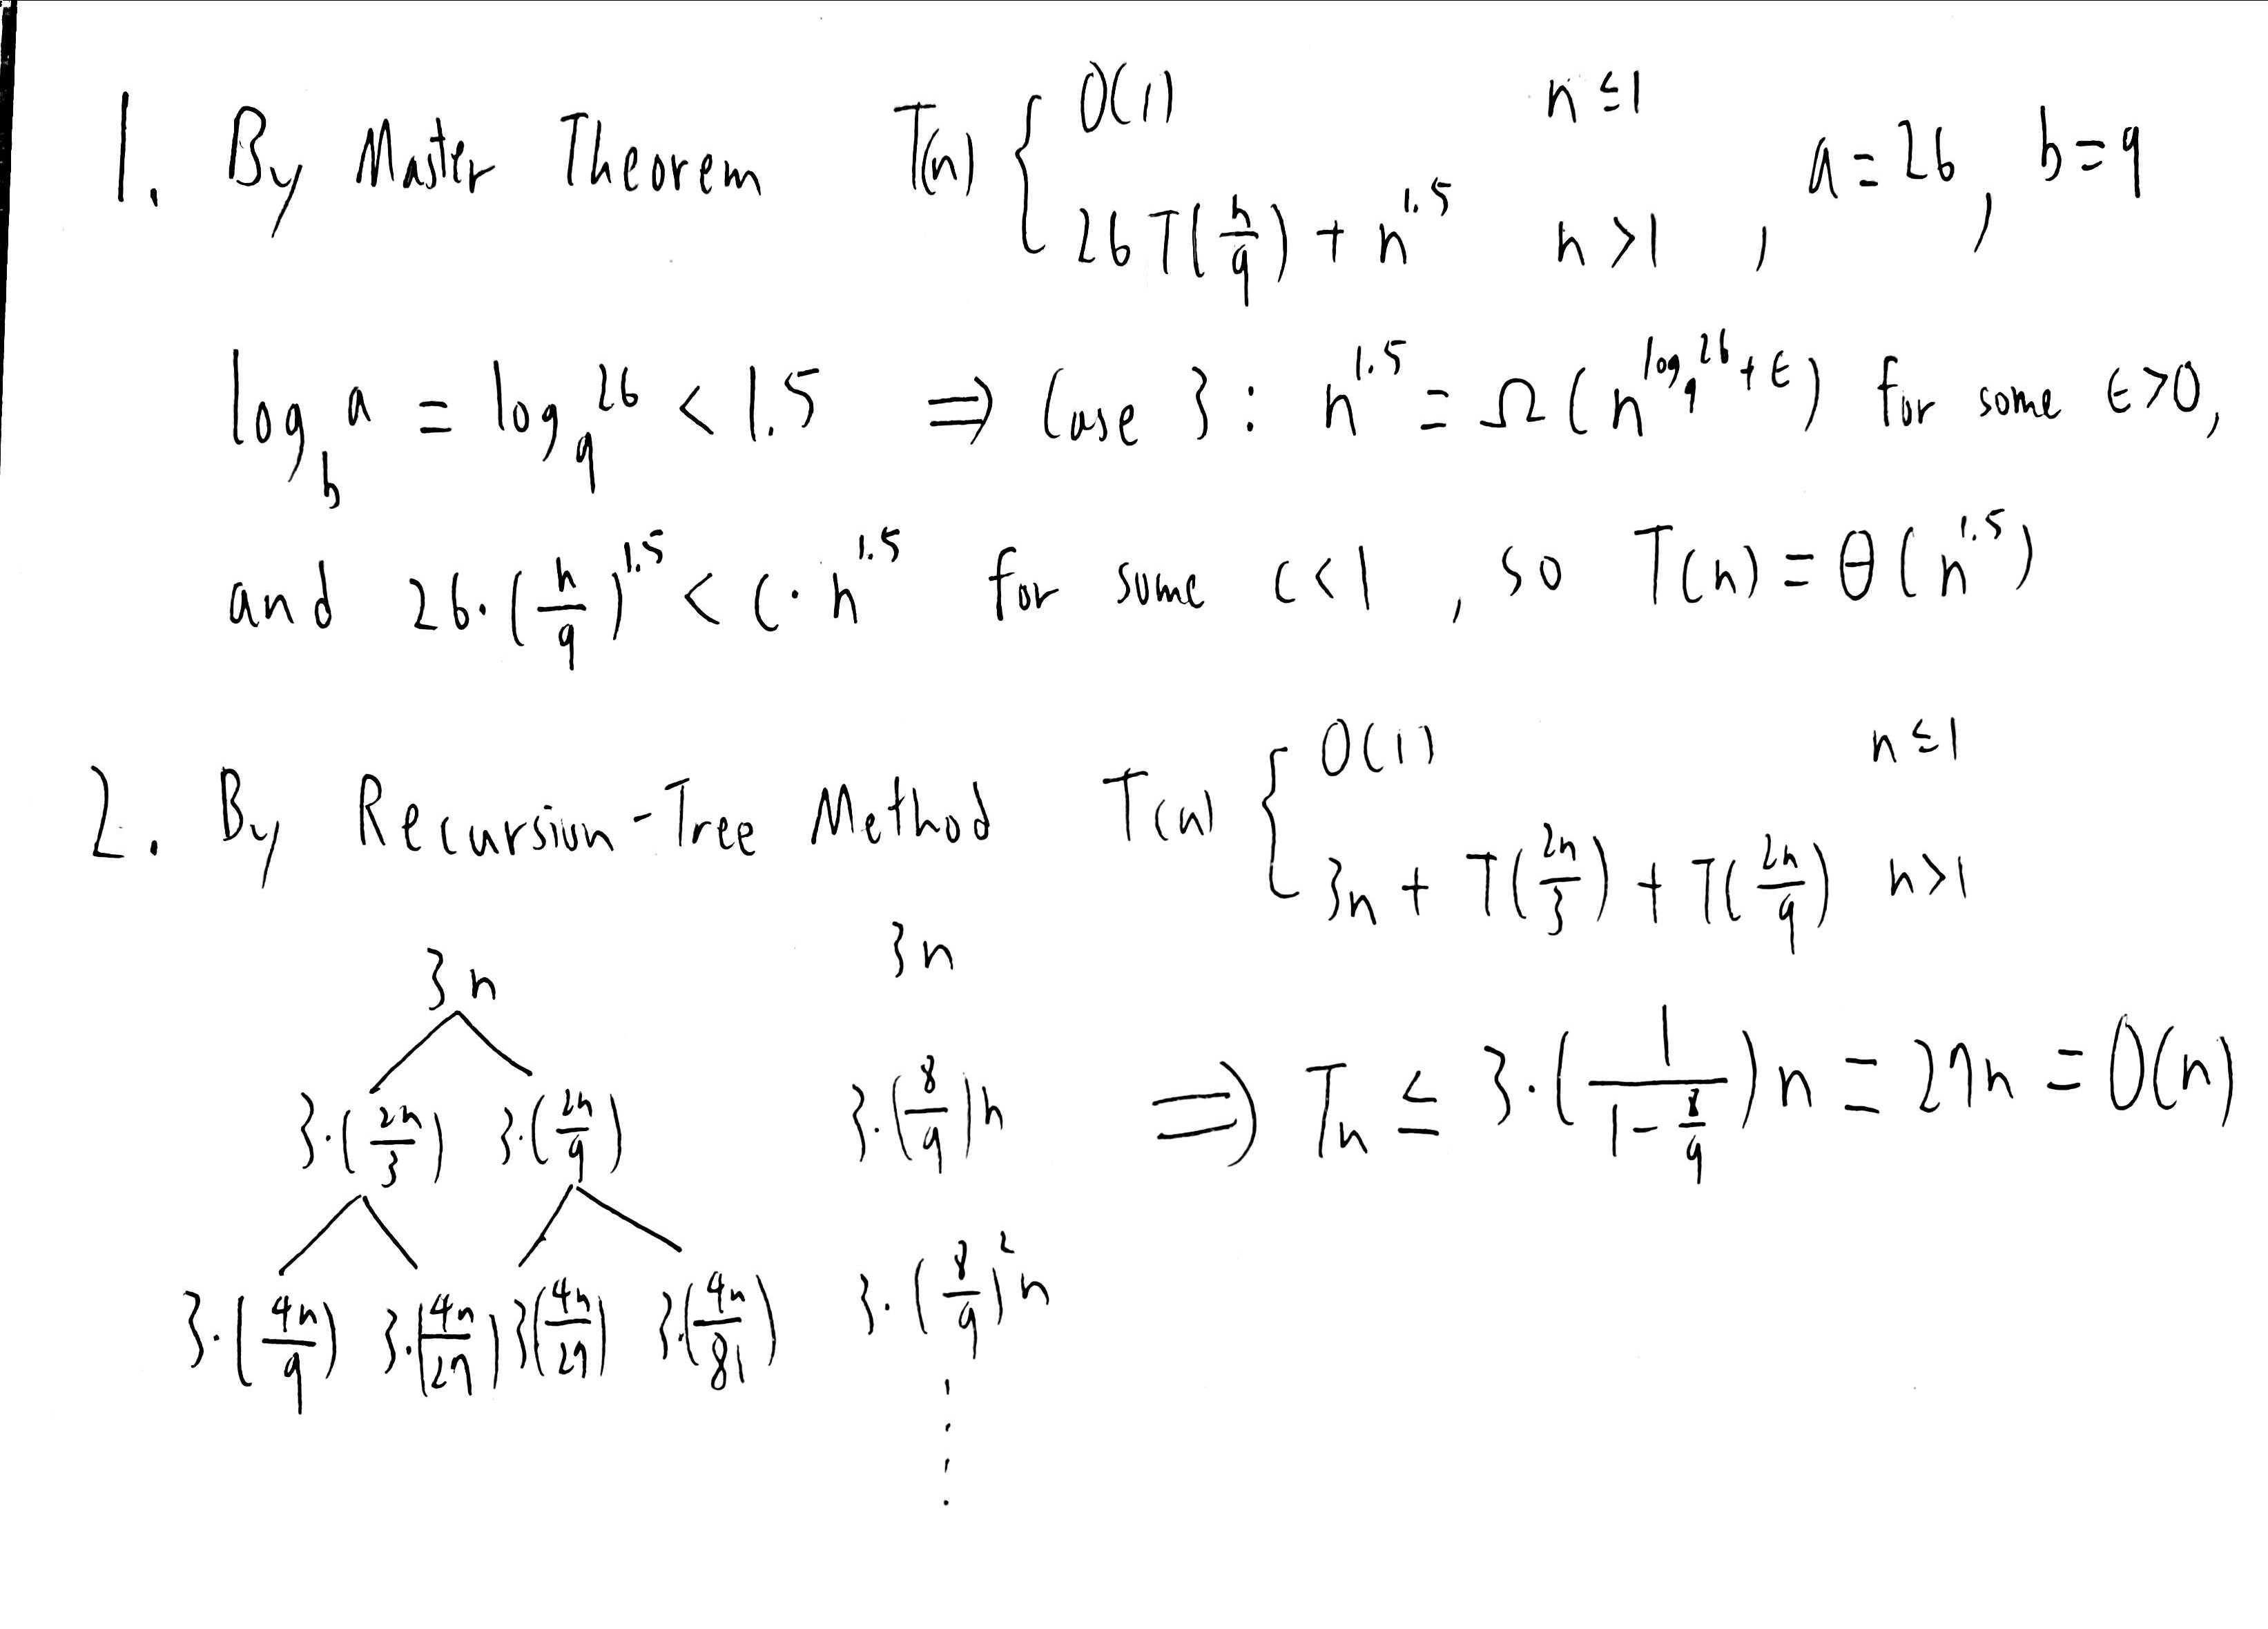 1. By Master Theorem T(n) { O(1) n ≤ 1
26T(n/9) + n^1.5 n > 1 , a = 26, b = 9
log_b a = log_9 26 < 1.5 ⇒ Case 3 : n^1.5 = Ω(n^(log_9 26 + ε)) for some ε > 0,
and 26·(n/9)^1.5 < c·n^1.5 for some c < 1 , so T(n) = θ(n^1.5)
2. By Recursion-Tree Method T(n) { O(1) n ≤ 1
3n + T(2n/3) + T(2n/9) n > 1
3n 3n
3·(2n/3) 3·(2n/9) 3·(8/9)n ⇒ Tn ≤ 3·(1/(1-8/9))n = 27n = O(n)
3·(4n/9) 3·(4n/27) 3(4n/27) 3·(4n/81) 3·(8/9)^2 n